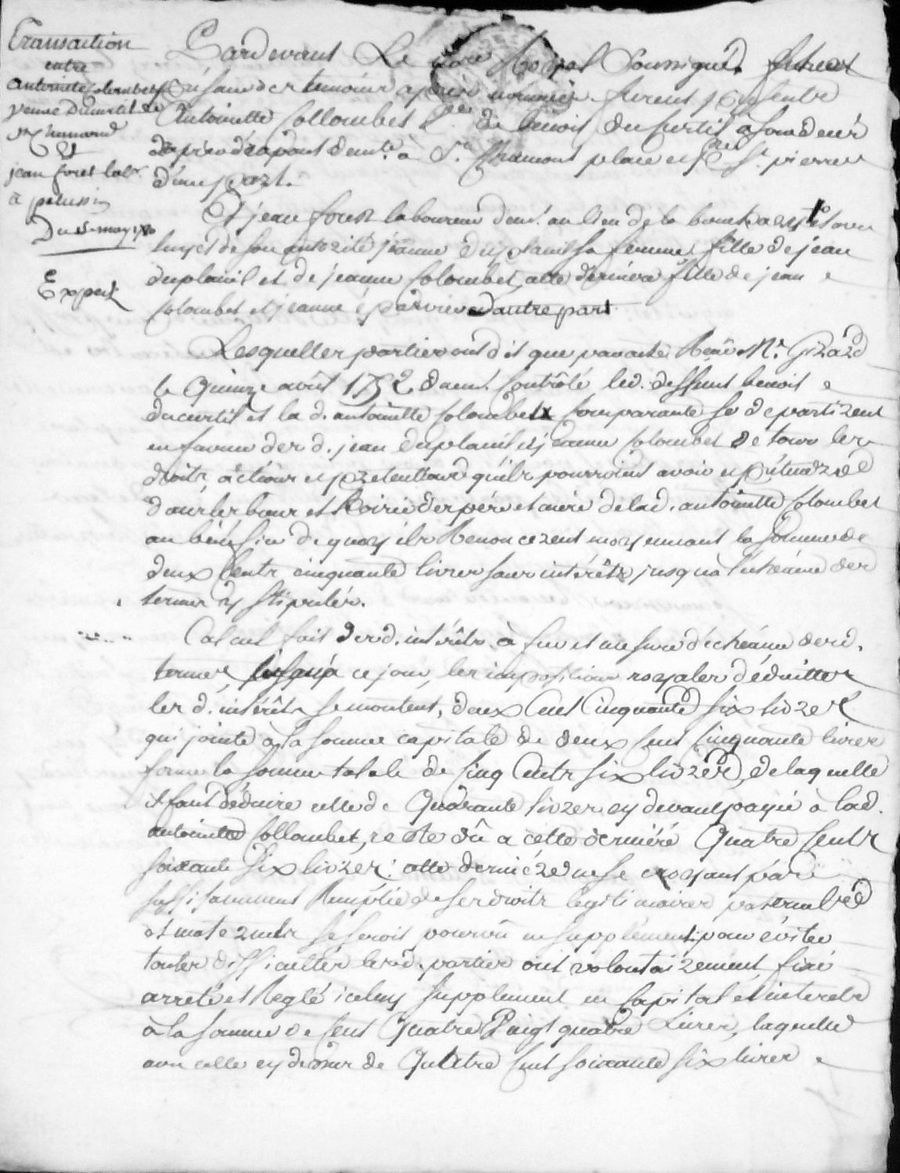 Transaction
entre
antoinette colombet
veuve ducurtil de
st chamond
Et
jean foret labr
à pelussin
Du 15 may 1780
Expert
Pardevant Le Nore Royal Soussigné
présance des temoins après nommés furent presents
Antoinette Collombet de benois du Curtil
dt à St Chamont place et St pierre
d'une part.
Et jean forest laboureur demt. au lieu de la
de son autorité jeanne duplanil sa femme fille de jean
duplanil et de jeanne Colombet, cette derniere fille de jean
Colombet et jeanne éparvier d'autre part.
Lesquelles parties ont dit que par acte Reçû Me. Girard
le Quinze avril 1752 duemt. Controlé led. deffunt benois
ducurtil et la d. antoinette Colombet Comparante se departirent
en faveur des d. jean duplanil et jeanne Colombet de tous les
droits actions et prétentions qu'ils pourroient avoir et prétendre
sur les biens et hoirie des pere et mere de lad. antoinette Colombet
au bénéfice de quoy ils Renoncerent moyennant la somme de
deux Cents cinquante livres sans intérêts jusqu'à l'échéance des
termes y stipulés.
Calcul fait desd. intérêts à fur et mesure d'échéance desd.
termes jusqu'à ce jour, les impositions royales déduittes
les d. intérêts se montent, deux Cent Cinquante six livres
qui jointe à la somme capitale de deux Cent Cinquante livres
forme la somme totale de Cinq Cents six livres, de laquelle
il faut déduire celle de Quarante livres cy devant payée à lad.
antoinette Collombet, reste dû a cette derniere Quatre Cents
soixante six livres: cette derniere ne se croyant pas
suffisamment Remplie de ses droits legitimaires paternels
et maternels se seroit pourvûe en supplément, pour éviter
toutes difficultés lesd. parties ont volontairement fixé
arreté et Reglé iceluy Supplement en Capital et interets
à la somme de Cent Quatre Vingt quatre Livres, laquelle
avec celle cy dessus de Quattre Cent soixante six livres